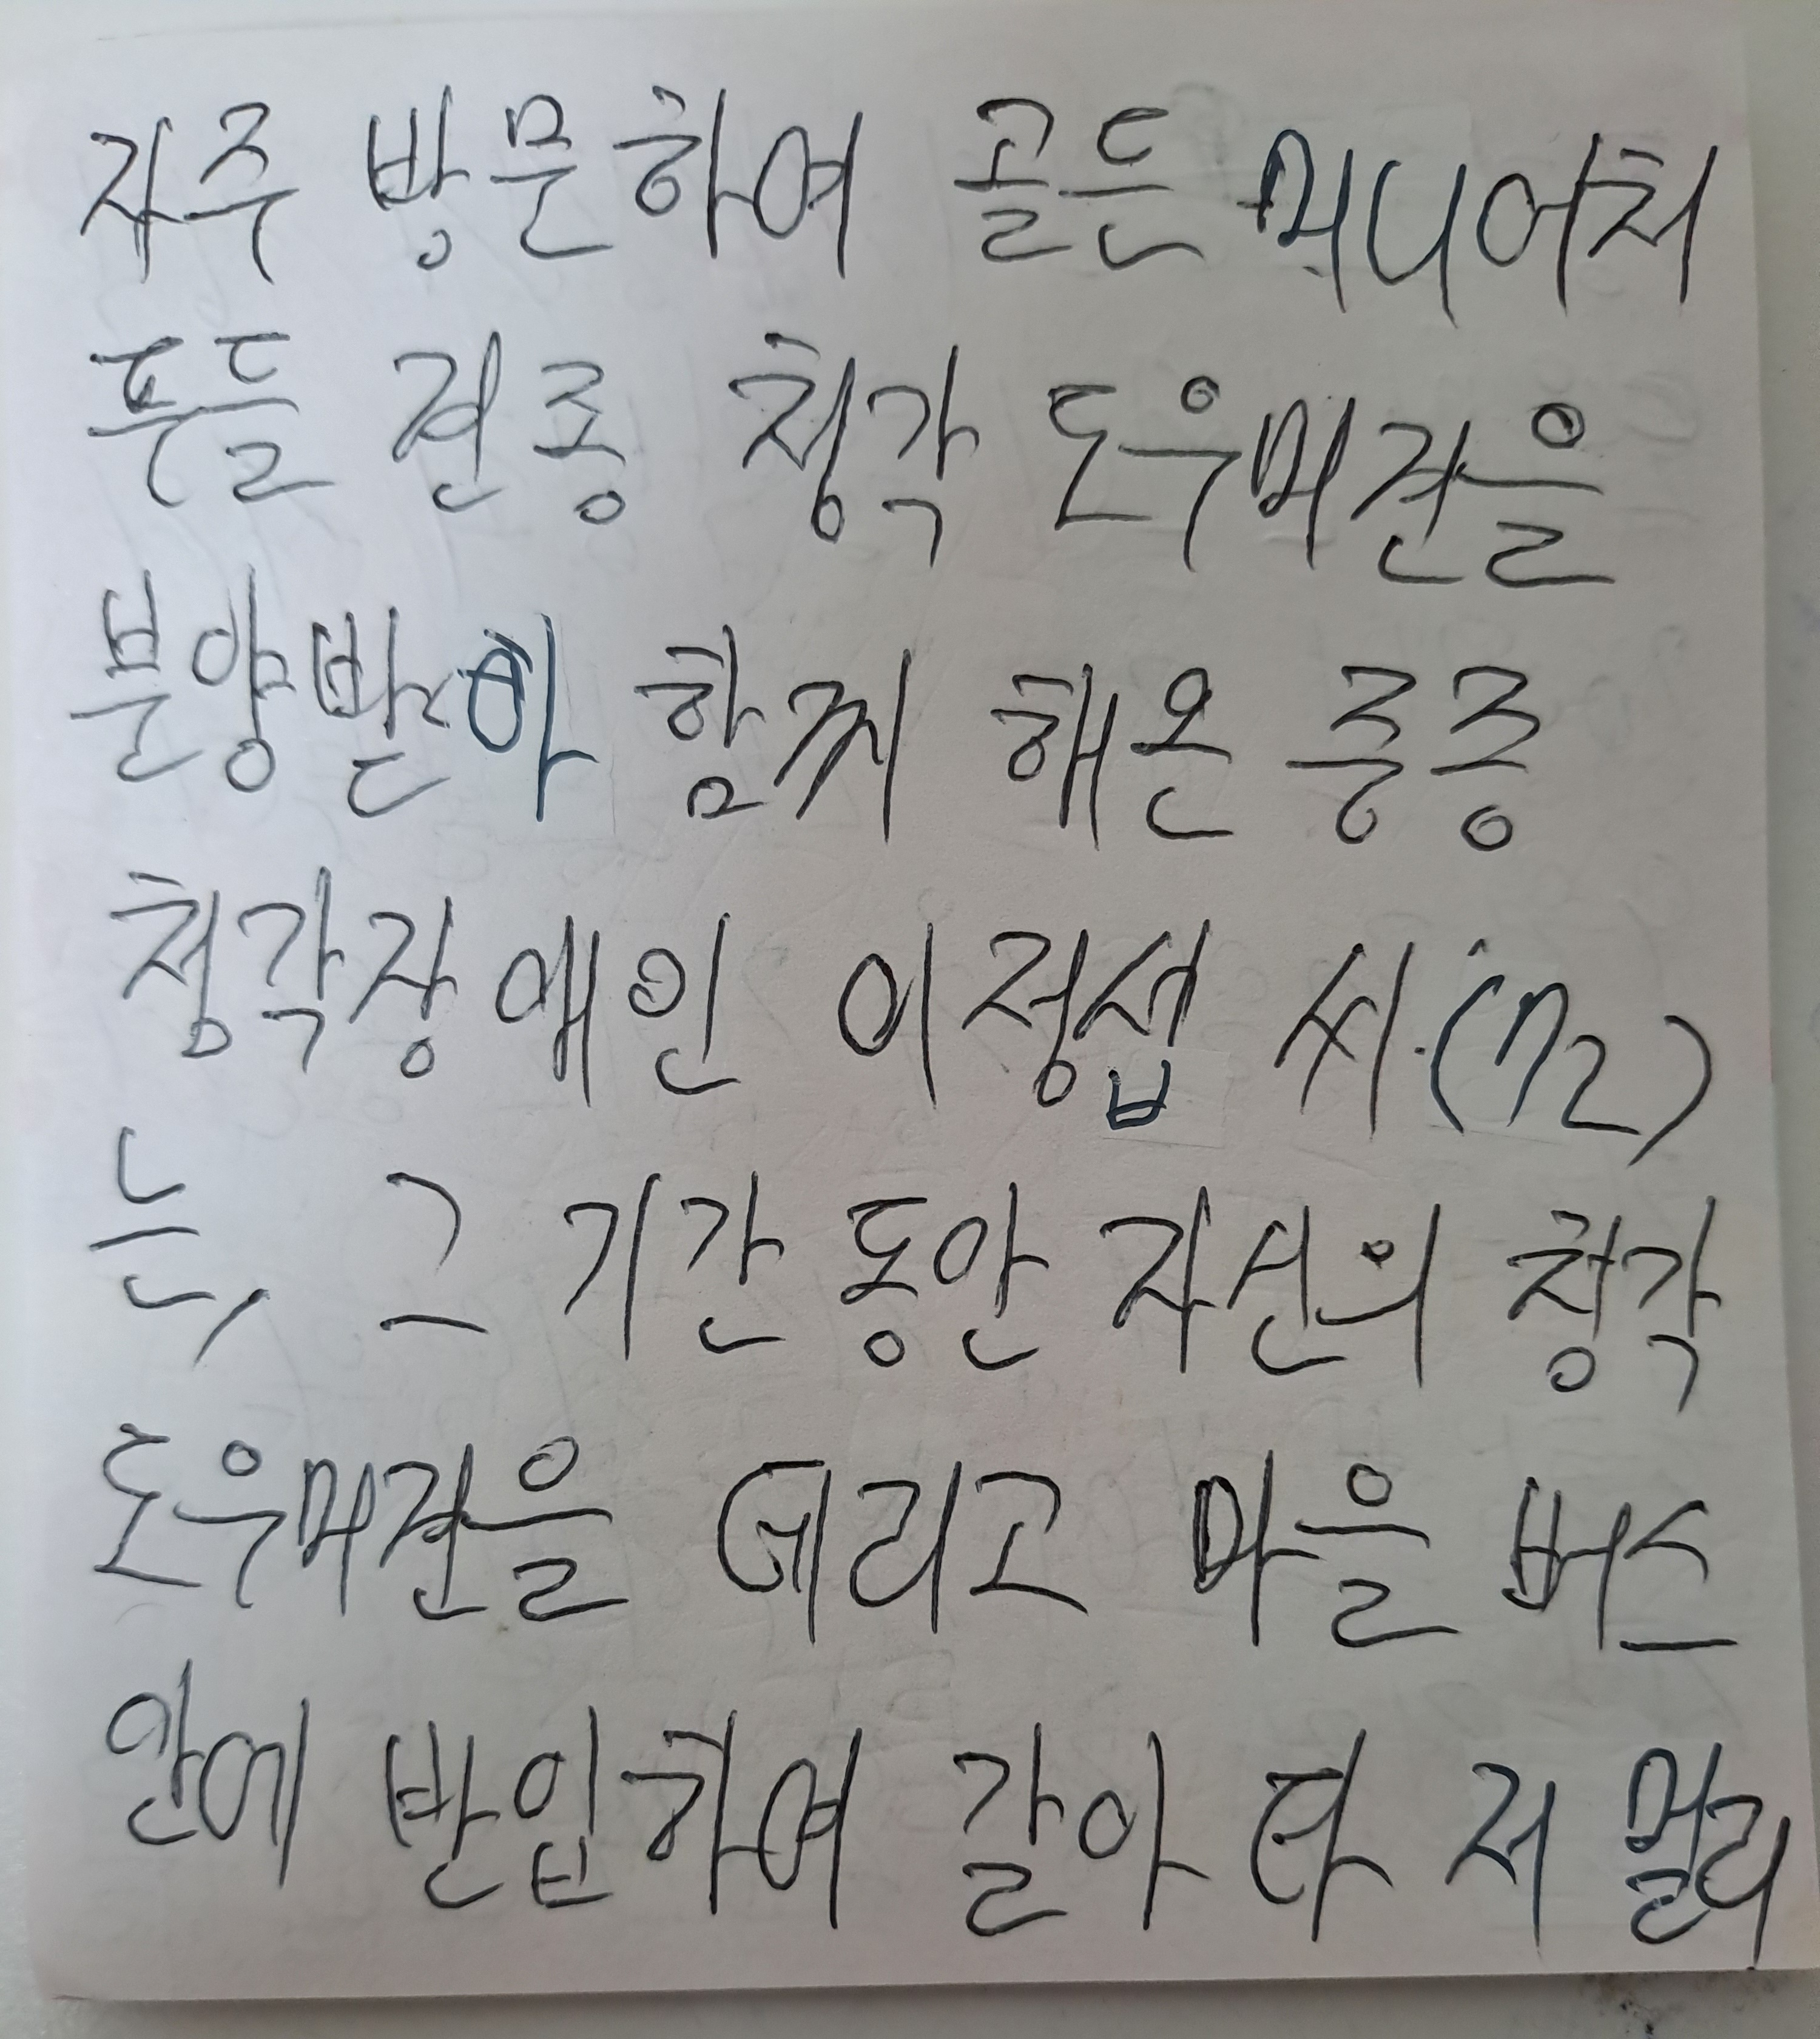 자주 방문하여 골든 미니어처
푸들 견종 청각 도우미견을
분양받아 함께 해온 중증
청각장애인 이정섭 씨(72)
는, 그 기간동안 자신의 청각
도우미견을 데리고 마을 버스
안에 반입하여 갈아 타 저 멀리